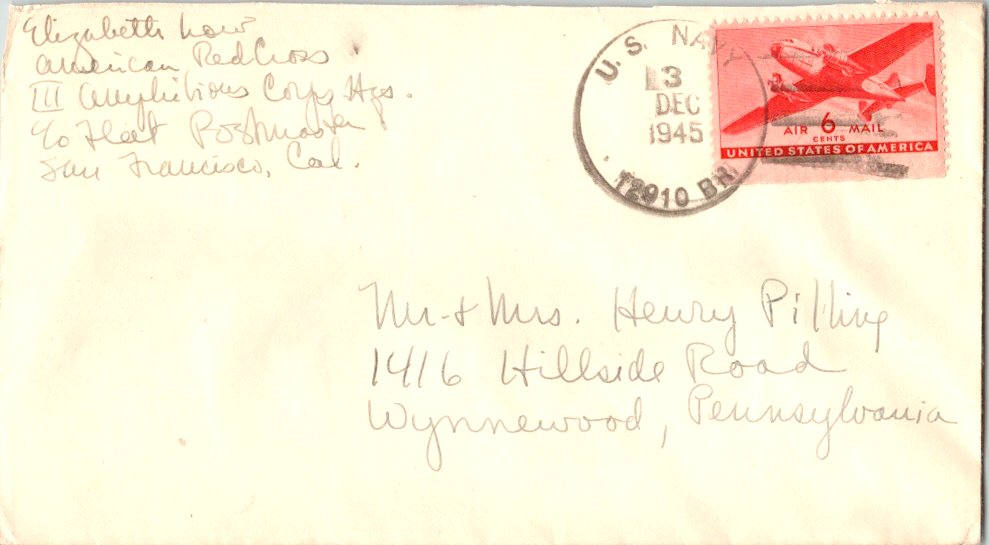 Elizabeth Low
American Red Cross
III Amphibious Corps Hqs.
c/o Fleet Postmaster
San Francisco, Cal.
U. S. NAVY
3
DEC
1945
12910 BR.
AIR 6 MAIL
CENTS
UNITED STATES OF AMERICA
Mr. & Mrs. Henry Pilling
1416 Hillside Road
Wynnewood, Pennsylvania